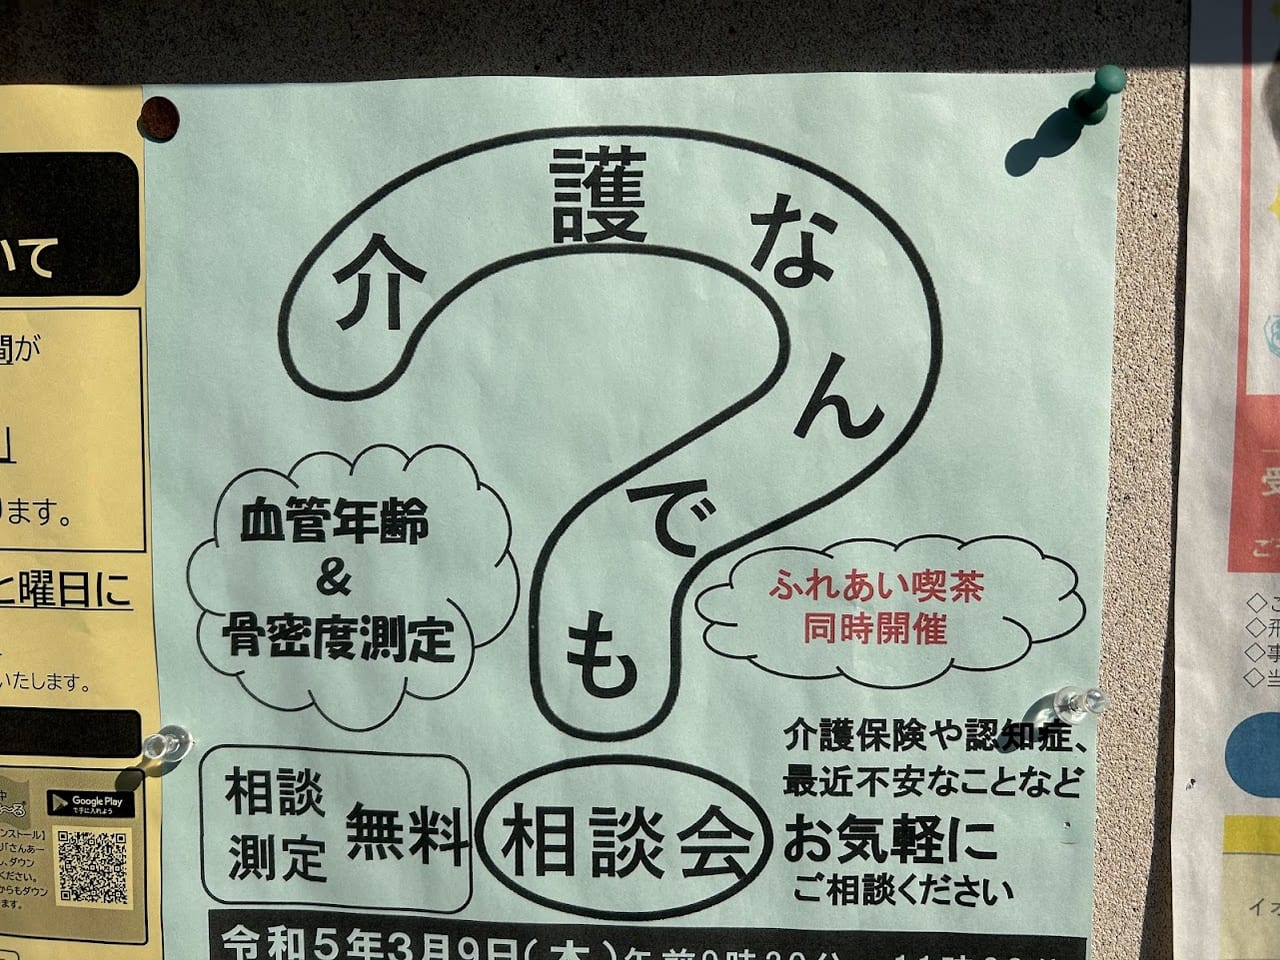 介護なんでも
相談会
血管年齢
&
骨密度測定
ふれあい喫茶
同時開催
相談
測定
無料
介護保険や認知症、
最近不安なことなど
お気軽に
ご相談ください
令和5年3月9日(木)午前9時30分
いて
間が
ます。
と曜日に
いたします。
Google Play
で手に入れよう